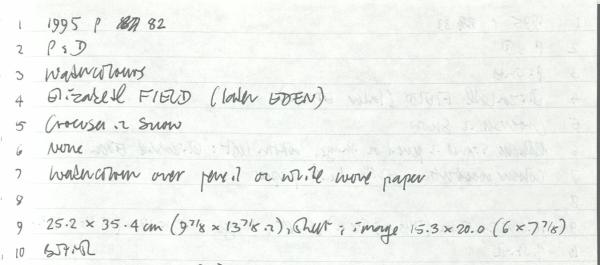 1 1995 P 82
2 P & D
3 Watercolours
4 Elizabeth FIELD (later EDEN)
5 Crocuses in Snow
6 None
7 Watercolour over pencil on white wove paper
8
9 25.2 x 35.4 cm (9 7/8 x 13 7/8 in), sheet; image 15.3 x 20.0 (6 x 7 7/8)
10